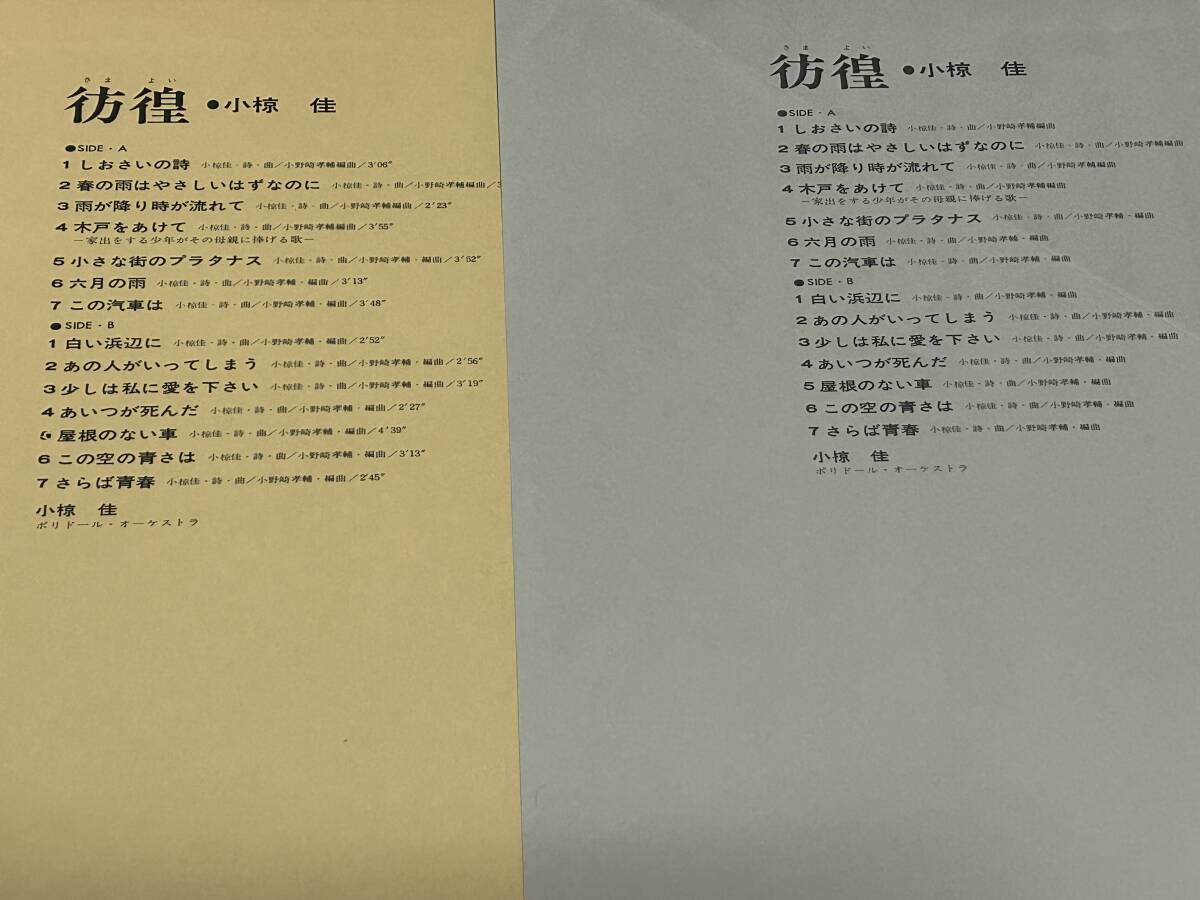 さま よい
彷徨 ●小椋 佳
●SIDE・A
1 しおさいの詩 小椋佳・詩・曲／小野崎孝輔編曲／3′06″
2 春の雨はやさしいはずなのに 小椋佳・詩・曲／小野崎孝輔編曲／3
3 雨が降り時が流れて 小椋佳・詩・曲／小野崎孝輔編曲／2′23″
4 木戸をあけて 小椋佳・詩・曲／小野崎孝輔編曲／3′55″
―家出をする少年がその母親に捧げる歌―
5 小さな街のプラタナス 小椋佳・詩・曲／小野崎孝輔・編曲／3′52″
6 六月の雨 小椋佳・詩・曲／小野崎孝輔・編曲／3′13″
7 この汽車は 小椋佳・詩・曲／小野崎孝輔・編曲／3′48″
●SIDE・B
1 白い浜辺に 小椋佳・詩・曲／小野崎孝輔・編曲／2′52″
2 あの人がいってしまう 小椋佳・詩・曲／小野崎孝輔・編曲／2′56″
3 少しは私に愛を下さい 小椋佳・詩・曲／小野崎孝輔・編曲／3′19″
4 あいつが死んだ 小椋佳・詩・曲／小野崎孝輔・編曲／2′27″
屋根のない車 小椋佳・詩・曲／小野崎孝輔・編曲／4′39″
6 この空の青さは 小椋佳・詩・曲／小野崎孝輔・編曲／3′13″
7 さらば青春 小椋佳・詩・曲／小野崎孝輔・編曲／2′45″
小椋 佳
ポリドール・オーケストラ
さま よい
彷徨 ●小椋 佳
●SIDE・A
1 しおさいの詩 小椋佳・詩・曲／小野崎孝輔編曲
2 春の雨はやさしいはずなのに 小椋佳・詩・曲／小野崎孝輔編曲
3 雨が降り時が流れて 小椋佳・詩・曲／小野崎孝輔編曲
4 木戸をあけて 小椋佳・詩・曲／小野崎孝輔編曲
―家出をする少年がその母親に捧げる歌―
5 小さな街のプラタナス 小椋佳・詩・曲／小野崎孝輔・編曲
6 六月の雨 小椋佳・詩・曲／小野崎孝輔・編曲
7 この汽車は 小椋佳・詩・曲／小野崎孝輔・編曲
●SIDE・B
1 白い浜辺に 小椋佳・詩・曲／小野崎孝輔・編曲
2 あの人がいってしまう 小椋佳・詩・曲／小野崎孝輔・編曲
3 少しは私に愛を下さい 小椋佳・詩・曲／小野崎孝輔・編曲
4 あいつが死んだ 小椋佳・詩・曲／小野崎孝輔・編曲
5 屋根のない車 小椋佳・詩・曲／小野崎孝輔・編曲
6 この空の青さは 小椋佳・詩・曲／小野崎孝輔・編曲
7 さらば青春 小椋佳・詩・曲／小野崎孝輔・編曲
小椋 佳
ポリドール・オーケストラ